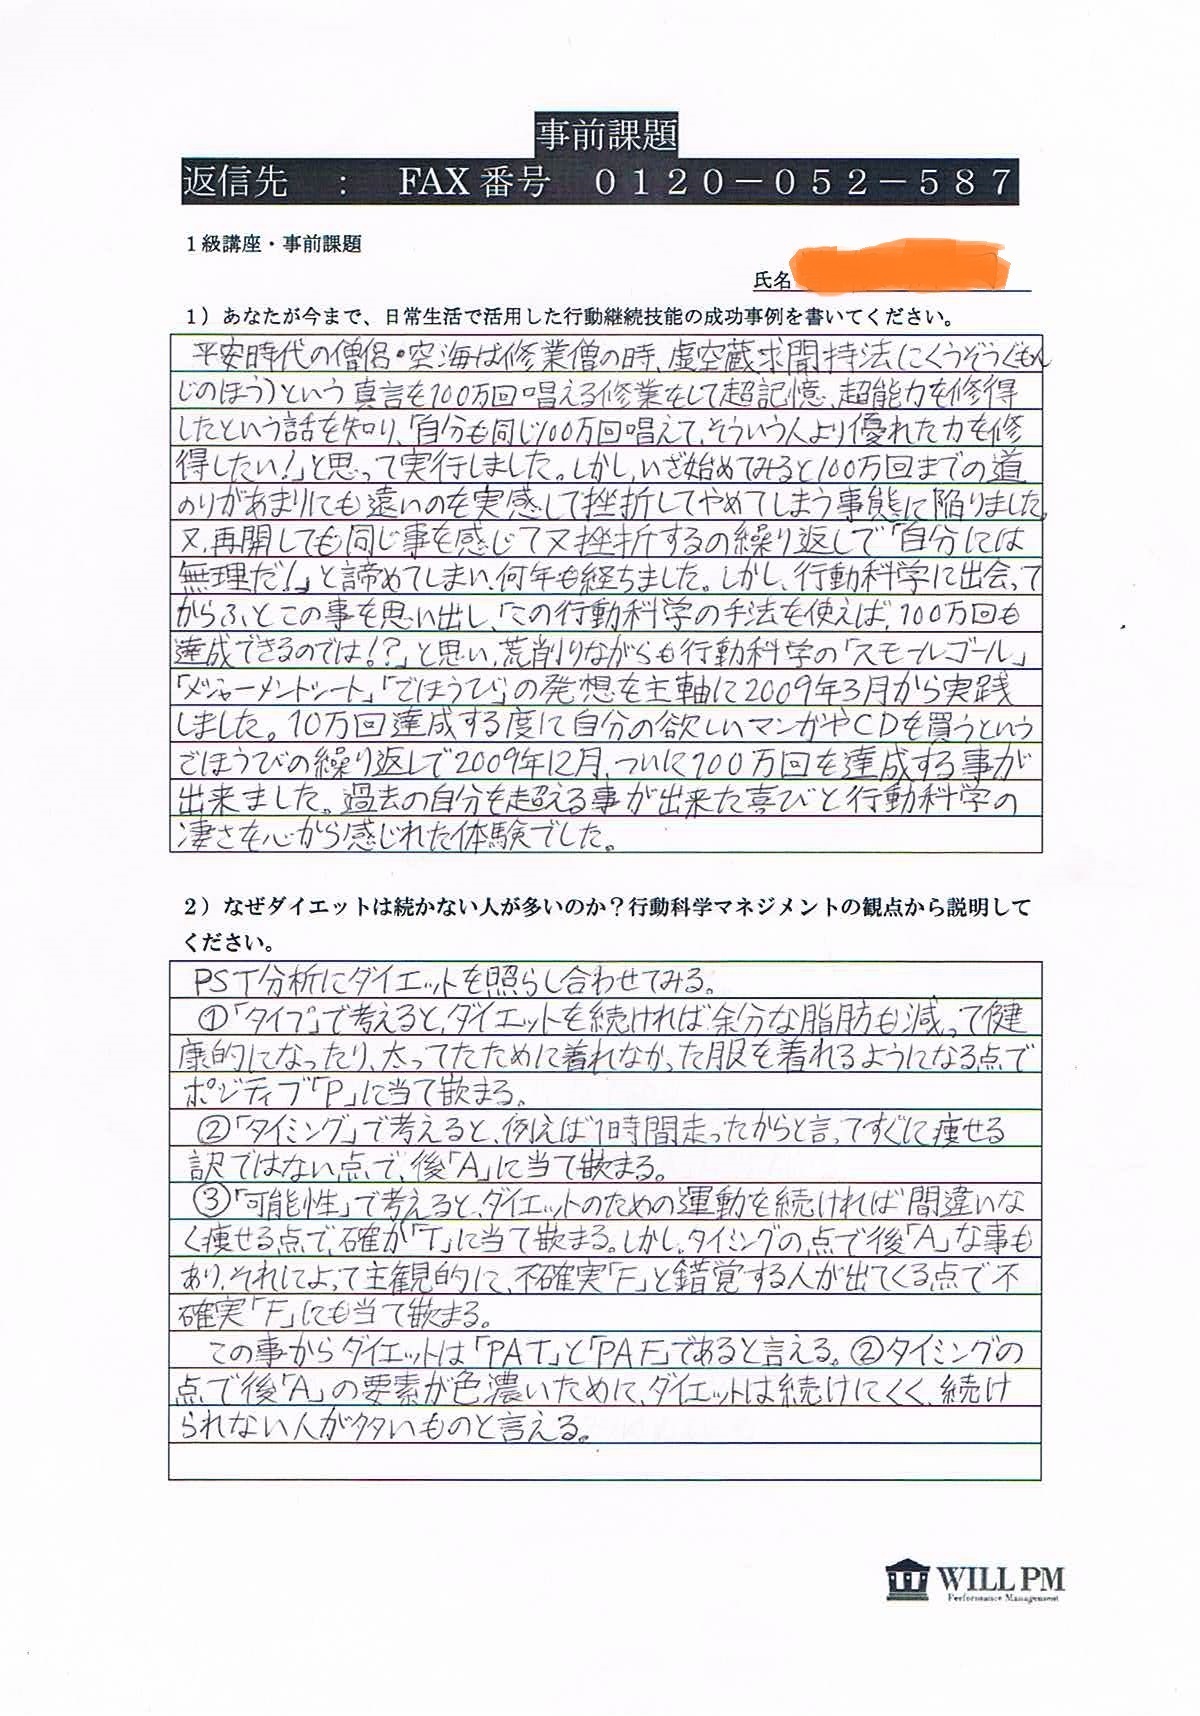 事前課題
返信先　：　FAX番号　０１２０－０５２－５８７
１級講座・事前課題
氏名
１）あなたが今まで、日常生活で活用した行動継続技能の成功事例を書いてください。
平安時代の僧侶・空海は修業僧の時、虚空蔵求聞持法(こくうぞうぐもん
じのほう)という真言を100万回唱える修業をして超記憶、超能力を修得
したという話を知り、「自分も同じ100万回唱えて、そういう人より優れた力を修
得したい！」と思って実行しました。しかし、いざ始めてみると100万回までの道
のりがあまりにも遠いのを実感して挫折してやめてしまう事態に陥りました。
又、再開しても同じ事を感じて又挫折するの繰り返しで「自分には
無理だ！」と諦めてしまい、何年も経ちました。しかし、行動科学に出会って
からふとこの事を思い出し、「この行動科学の手法を使えば、100万回も
達成できるのでは！？」と思い、荒削りながらも行動科学の「スモールゴール」
「メジャーメントシート」「ごほうび」の発想を主軸に2009年3月から実践
しました。10万回達成する度に自分の欲しいマンガやCDを買うという
ごほうびの繰り返しで2009年12月、ついに100万回を達成する事が
出来ました。過去の自分を超える事が出来た喜びと行動科学の
凄さを心から感じれた体験でした。
２）なぜダイエットは続かない人が多いのか？行動科学マネジメントの観点から説明して
ください。
PST分析にダイエットを照らし合わせてみる。
①「タイプ」で考えると、ダイエットを続ければ余分な脂肪も減って健
康的になったり、太ってたために着れなかった服を着れるようになる点で
ポジティブ「P」に当て嵌まる。
②「タイミング」で考えると、例えば1時間走ったからと言ってすぐに痩せる
訳ではない点で、後「A」に当て嵌まる。
③「可能性」で考えると、ダイエットのための運動を続ければ間違いな
く痩せる点で、確か「T」に当て嵌まる。しかし、タイミングの点で後「A」な事も
あり、それによって主観的に、不確実「F」と錯覚する人が出てくる点で不
確実「F」にも当て嵌まる。
この事からダイエットは「PAT」と「PAF」であると言える。②タイミングの
点で後「A」の要素が色濃いために、ダイエットは続けにくく、続け
られない人が多いものと言える。
WILL PM
Performance Management